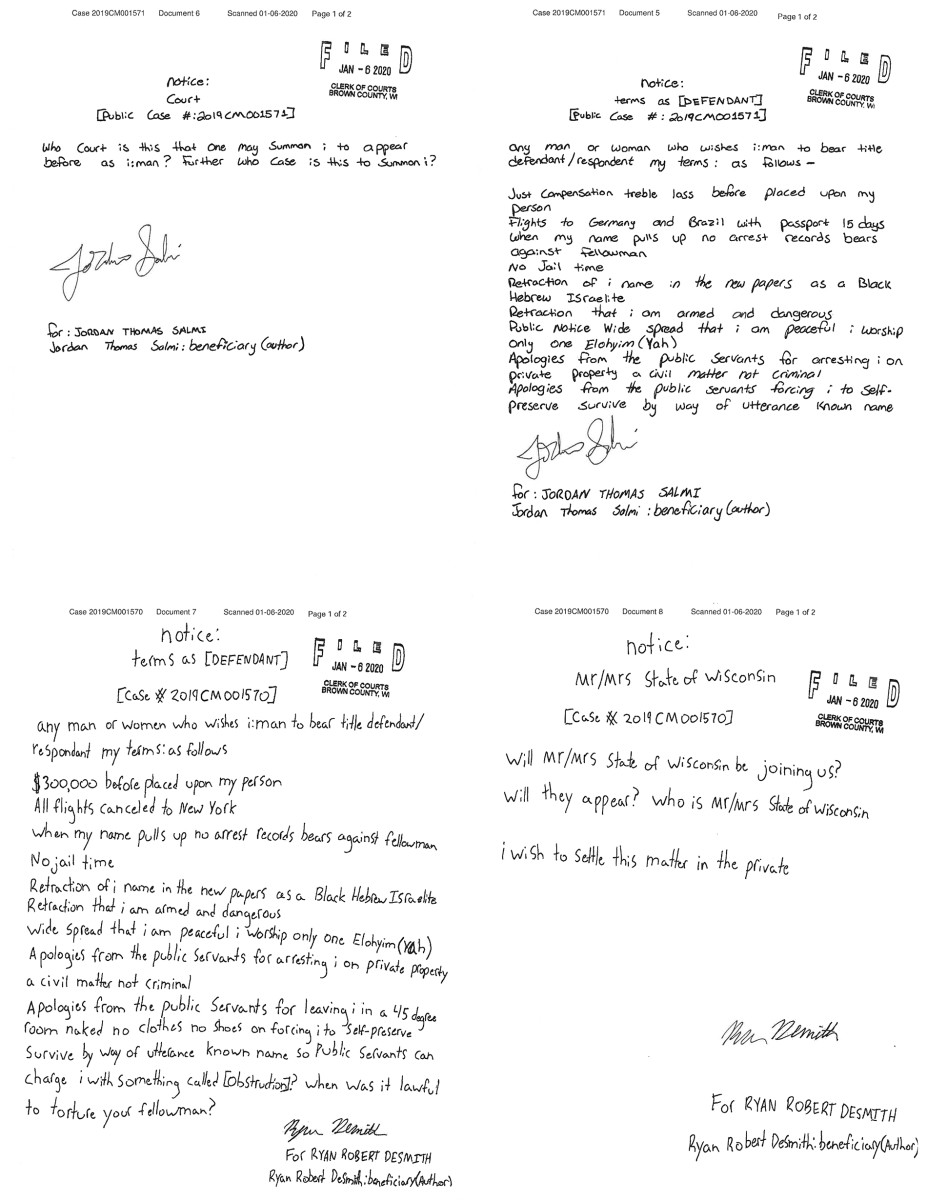 Case 2019CM001571 Document 6 Scanned 01-06-2020 Page 1 of 2
FILED
JAN - 6 2020
CLERK OF COURTS
BROWN COUNTY, WI
notice:
Court
[Public Case #:2019CM001571]
Who Court is this that one may Summon i to appear
before as i:man? Further who Case is this to Summon i?
for: JORDAN THOMAS SALMI
Jordan Thomas Salmi: beneficiary (author)
Case 2019CM001571 Document 5 Scanned 01-06-2020 Page 1 of 2
FILED
JAN - 6 2020
CLERK OF COURTS
BROWN COUNTY, WI
notice:
terms as [DEFENDANT]
[Public Case #: 2019CM001571]
any man or woman who wishes i:man to bear title
defendant/respondent my terms: as follows -
Just Compensation treble loss before placed upon my
person
flights to Germany and Brazil with passport 15 days
when my name pulls up no arrest records bears
against fellowman
No Jail time
Retraction of i name in the new papers as a Black
Hebrew Israelite
Retraction that i am armed and dangerous
Public Notice Wide spread that i am peaceful i worship
only one Elohyim (Yah)
Apologies from the public servants for arresting i on
private property a civil matter not criminal
Apologies from the public servants forcing i to self-
preserve survive by way of utterance known name
for: JORDAN THOMAS SALMI
Jordan Thomas Salmi: beneficiary (author)
Case 2019CM001570 Document 7 Scanned 01-06-2020 Page 1 of 2
notice:
terms as [DEFENDANT]
FILED
JAN - 6 2020
CLERK OF COURTS
BROWN COUNTY, WI
[Case # 2019CM001570]
any man or women who wishes i:man to bear title defendant/
respondant my terms: as follows
$300,000 before placed upon my person
All flights canceled to New York
when my name pulls up no arrest records bears against fellowman
No jail time
Retraction of i name in the new papers as a Black Hebrew Israelite
Retraction that i am armed and dangerous
Wide spread that i am peaceful i worship only one Elohyim (Yah)
Apologies from the public servants for arresting i on private property
a civil matter not criminal
Apologies from the public Servants for leaving i in a 45 degree
room naked no clothes no shoes on forcing i to self-preserve
Survive by way of utterance known name so Public Servants can
charge i with something called [Obstrution]? when was it lawful
to torture your fellowman?
Ryan Desmith
For RYAN ROBERT DESMITH
Ryan Robert DeSmith: beneficiary (Author)
Case 2019CM001570 Document 8 Scanned 01-06-2020 Page 1 of 2
notice:
Mr/Mrs State of Wisconsin
FILED
JAN - 6 2020
CLERK OF COURTS
BROWN COUNTY, WI
[Case # 2019CM001570]
Will Mr/Mrs State of Wisconsin be joining us?
Will they appear? who is Mr/Mrs State of Wisconsin
i wish to settle this matter in the private
Ryan Desmith
For RYAN ROBERT DESMITH
Ryan Robert Desmith: beneficiary (Author)